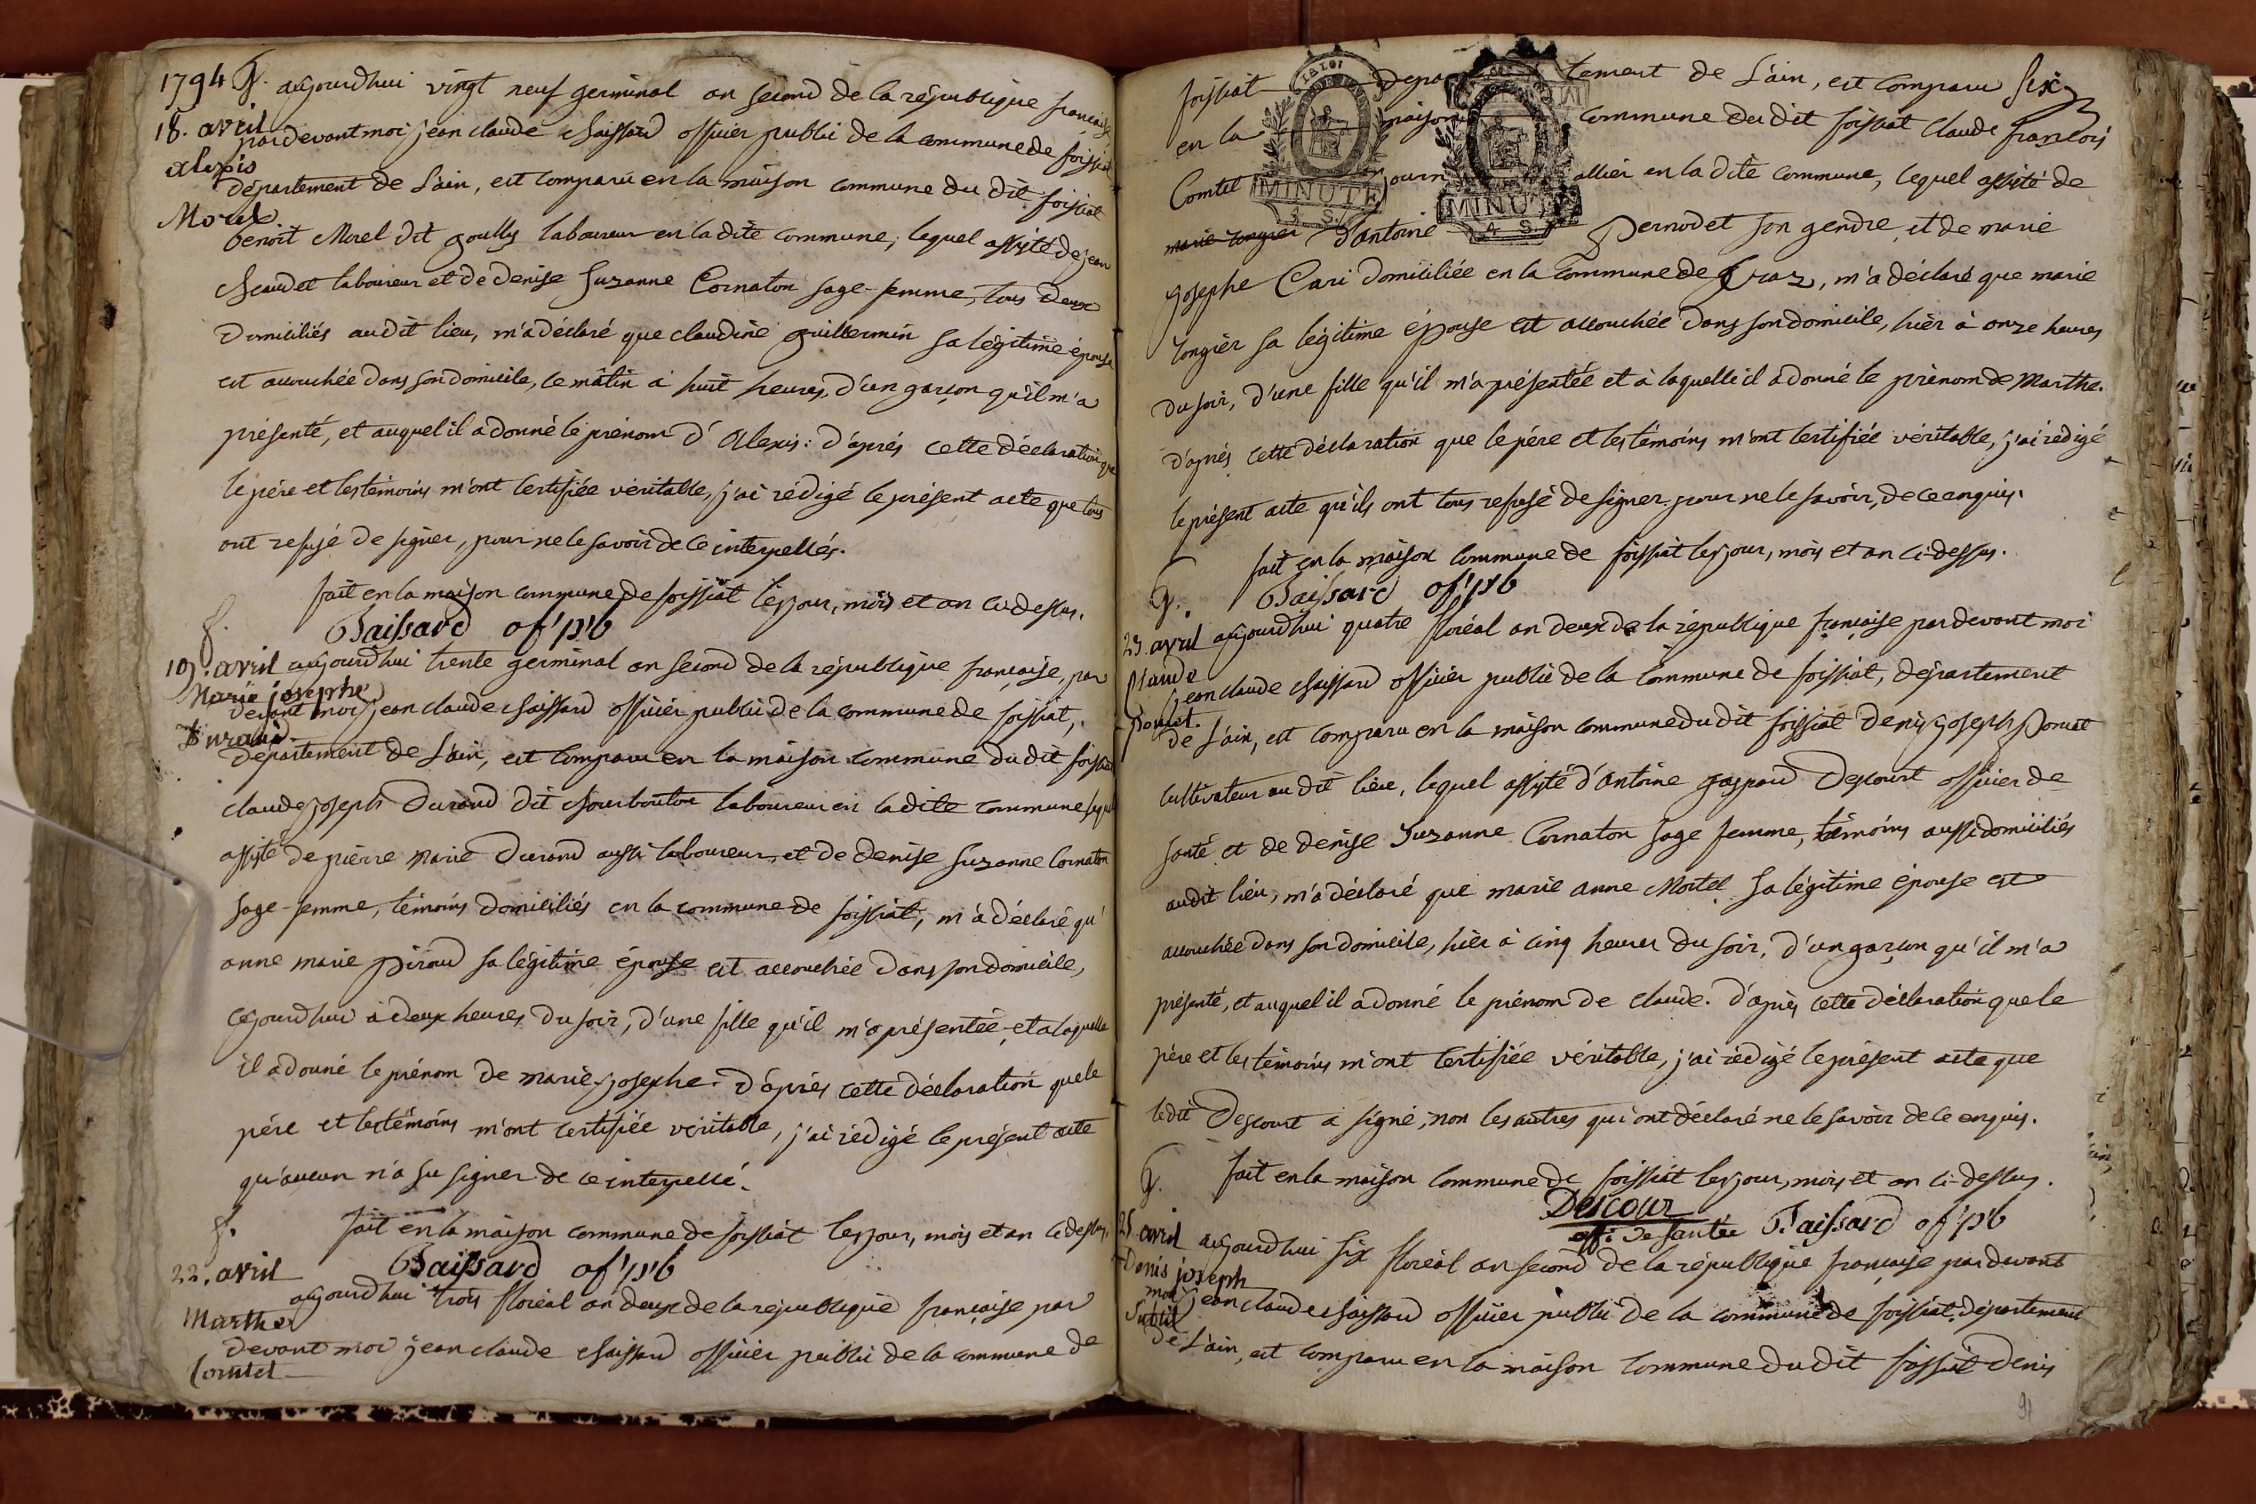 1794 G. aujourdhui vingt neuf germinal an second de la république françoise
18. avril pardevant moi jean claude Chaissard officier public de la commune de foissiat
alexis département de L'ain, est comparu en la maison commune du dit foissiat
Morel benoit Morel dit goully laboureur en la dite commune, lequel assisté de jean
Chaudet laboureur et de denise Suzanne Cornaton sage-femme, tous deux
Domiciliés audit lieu, m'a déclaré que claudine guillermin sa légitime épouse
est accouchée dans son domicile, ce matin à huit heures, d'un garçon qu'il m'a
présenté, et auquel il a donné le prénom d'Alexis: d'après cette déclaration que
le père et les témoins m'ont certifiée véritable, j'ai rédigé le présent acte que tous
ont refusé de signer, pour ne le savoir de ce interpellés.
fait en la maison commune de foissiat les jour, mois et an ci-dessus.
Baissard of'p'b
19. avril aujourd'hui trente germinal an second de la république françoise, par
Marie josephe devant moi jean claude Chaissard officier public de la commune de foissiat,
Durand. département de L'ain, est comparu en la maison commune du dit foissiat
claude joseph Durand dit Chourbouton laboureur en la dite commune lequel
assisté de pierre marie Durand aussi laboureur, et de denise Suzanne Cornaton
sage-femme, témoins domiciliés en la commune de foissiat, m'a déclaré qu'
anne marie Piroud sa légitime épouse est accouchée dans son domicile,
cejourdhui à deux heures du soir, d'une fille qu'il m'a présentée, et a laquelle
il a donné le prénom de marie-josephe. D'après cette déclaration que le
père et les témoins m'ont certifiée véritable, j'ai rédigé le présent acte
qu'aucun n'a su signer de ce interpellé.
fait en la maison commune de foissiat les jour, mois et an ci dessus.
Baissard of'p'b
22. avril aujourd'hui trois floréal an deux de la république françoise par
Marthe devant moi jean claude Chaissard officier public de la commune de
Comtet
foissiat département de L'ain, est comparu six
en la maison commune du dit foissiat Claude françois
Comtet journallier en la dite commune, lequel assisté de
marie tongier d'antoine Pernodet son gendre, et de marie
josephe Cari domiciliée en la commune de Craz, m'a déclaré que marie
tongier sa légitime épouse est accouchée dans son domicile, hier à onze heures
du soir, d'une fille qu'il m'a présentée et à laquelle il a donné le prénom de Marthe.
d'après cette déclaration que le père et les témoins m'ont certifiée véritable, j'ai rédigé
le présent acte qu'ils ont tous refusé de signer pour ne le savoir, de ce enquis.
fait en la maison commune de foissiat les jour, mois et an ci-dessus.
MINUTE
4. S.
MINUTE
4 S.
G. Baissard of'p'b
23. avril aujourd'hui quatre floréal an deux de la république françoise par devant moi
Claude jean claude Chaissard officier public de la commune de foissiat, département
Poncet. de L'ain, est comparu en la maison commune du dit foissiat denis joseph Poncet
cultivateur au dit lieu, lequel assisté d'antoine gaspard Descourt officier de
santé et de denise Suzanne Cornaton sage femme, témoins aussi domiciliés
audit lieu, m'a déclaré que marie anne Mortel sa légitime épouse est
accouchée dans son domicile, hier à cinq heures du soir, d'un garçon qu'il m'a
présenté, et auquel il a donné le prénom de claude. d'après cette déclaration que le
père et les témoins m'ont certifiée véritable, j'ai rédigé le présent acte que
ledit Descourt a signé, non les autres qui ont déclaré ne le savoir de ce enquis.
G. fait en la maison commune de foissiat les jour, mois et an ci-dessus.
Descour
offi de santée Baissard of'p'b
25 avril aujourd'hui six floréal an second de la république françoise par devant
Denis joseph moi jean claude Chaissard officier public de la commune de foissiat, département
Subtil de L'ain, est comparu en la maison commune du dit foissiat Denis
91